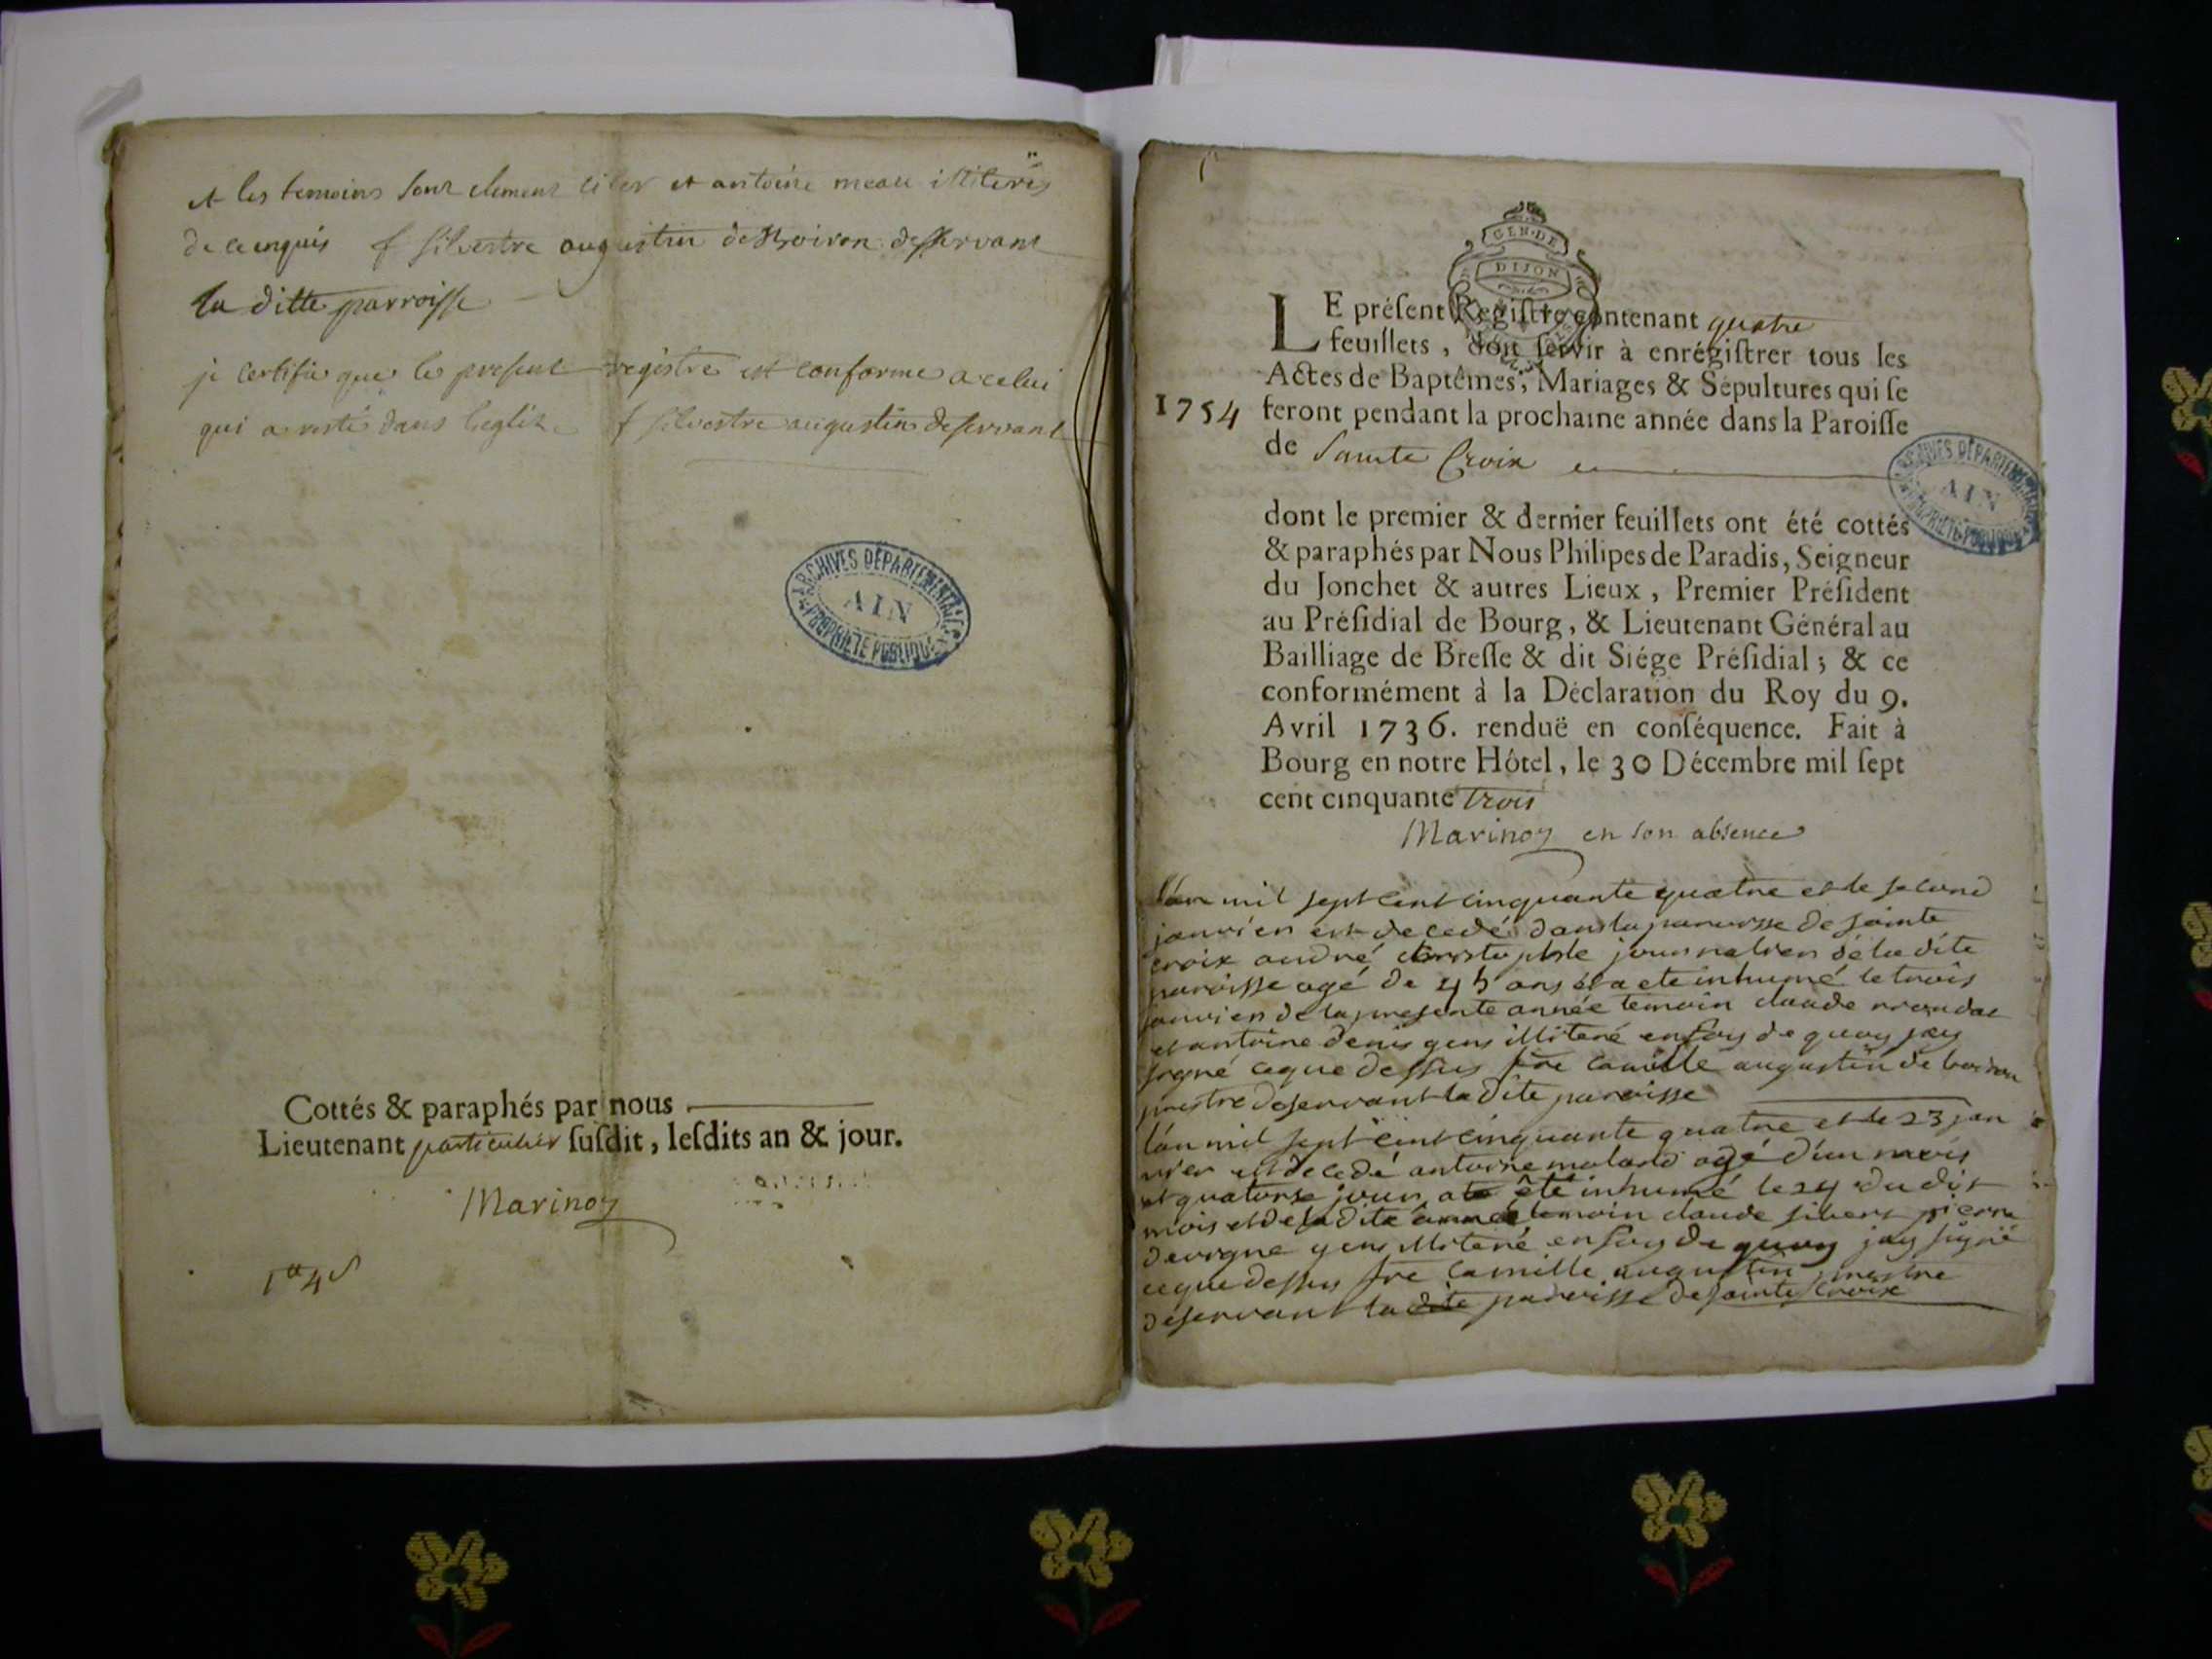 et les temoins sont clement et antoine meau illiterés
de ce enquis f silvestre augustin desservant
la ditte parroisse
je certifie que le present registre est conforme a celui
qui a resté dans leglise f silvestre augustin deservant
ARCHIVES DÉPARTEMENTALES
AIN
PROPRIÉTÉ PUBLIQUE
Cottés & paraphés par nous
Lieutenant particulier ſuſdit, leſdits an & jour.
Marinoz
GEN. DE
DIJON
LE préſent Regiſtre contenant quatre
feuillets, doit ſervir à enrégiſtrer tous les
Actes de Baptêmes, Mariages & Sépultures qui ſe
1754 feront pendant la prochaine année dans la Paroiſſe
de Sainte Croix
ARCHIVES DÉPARTEMENTALES
AIN
PROPRIÉTÉ PUBLIQUE
dont le premier & dernier feuillets ont été cottés
& paraphés par Nous Philipes de Paradis, Seigneur
du Jonchet & autres Lieux, Premier Préſident
au Préſidial de Bourg, & Lieutenant Général au
Bailliage de Breſſe & dit Siége Préſidial; & ce
conformément à la Déclaration du Roy du 9.
Avril 1736. renduë en conſéquence. Fait à
Bourg en notre Hôtel, le 30 Décembre mil ſept
cent cinquante trois
Marinoz en son absence
l'an mil sept cent cinquante quatre et le second
janvier est decedé dans la paroisse de sainte
croix andré christophle journalier de la dite
paroisse agé de 45 ans et a ete inhumé le trois
janvier de la presente année temoin claude
et antoine denis gens illiteré en foy de quoy jay
signé ce que dessus fre camille augustin de
prestre deservant la dite paroisse
l'an mil sept cent cinquante quatre et le 23 jan
vier est decedé antoine maland agé d'un mois
et quatorse jour a ete été inhumé le 24 du dit
mois et de la dite année temoin claude sibert pierre
devigne gens illiteré en foy de quoy jay signé
ce que dessus fre camille augustin prestre
deservant la dite paroisse de sainte croix